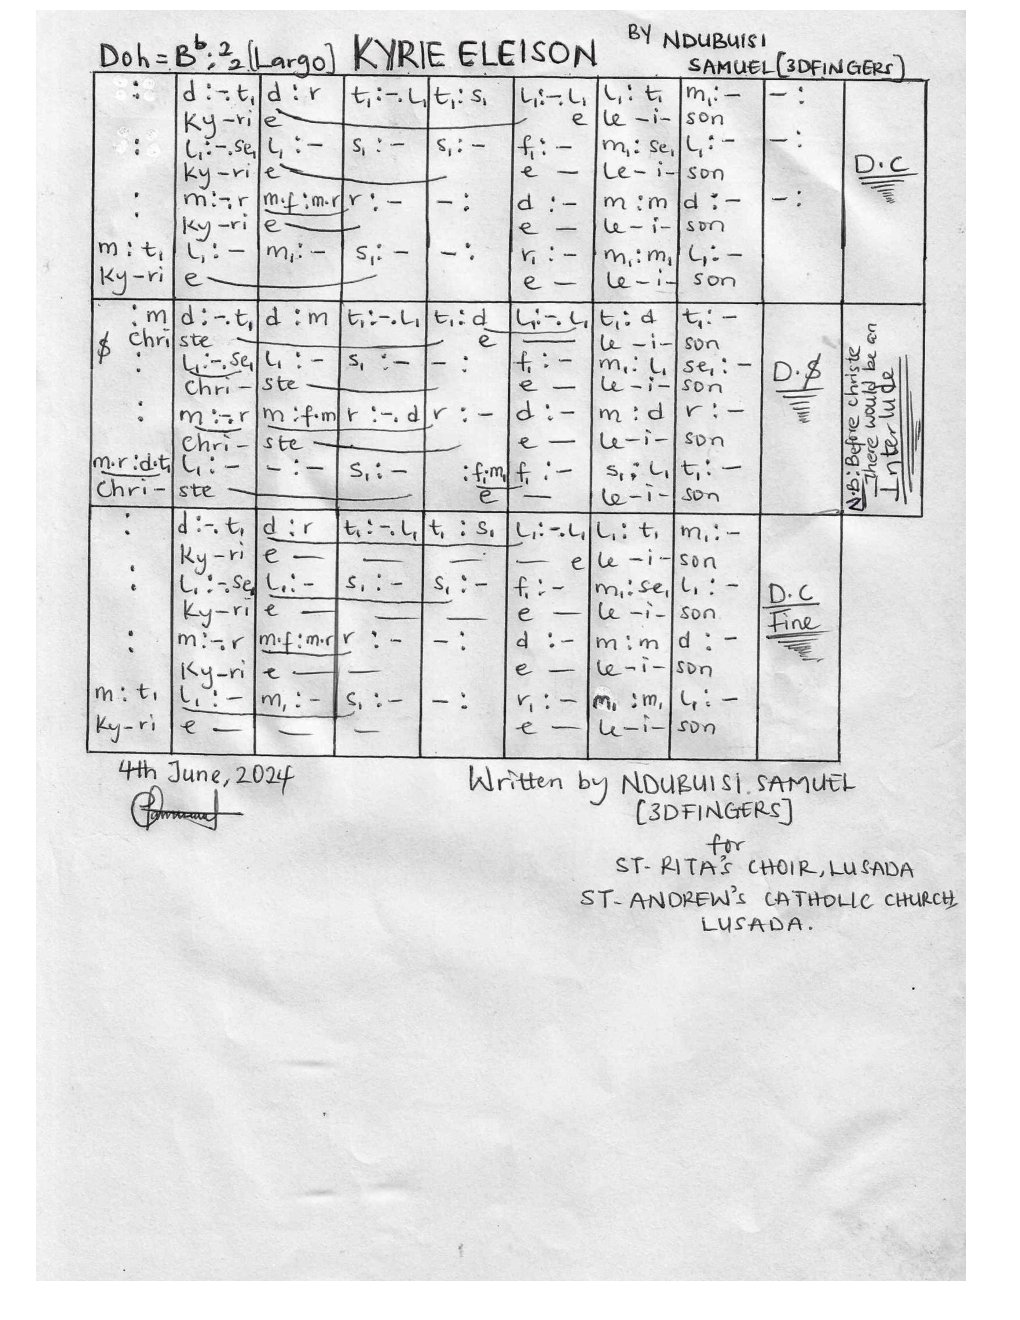 Doh = Bb: 2/2 [Largo] KYRIE ELEISON BY NDUBUISI
SAMUEL [3DFINGERS]
: d :-. t₁ d : r t₁ :-. l₁ t₁ : s₁ l₁ :-. l₁ l₁ : t₁ m₁ :- - :
Ky-ri e e le-i- son
: l₁ :-. se₁ l₁ :- s₁ :- s₁ :- f₁ :- m₁ : se₁ l₁ :- - :
Ky-ri e e — le-i- son D.C
: m :-. r m.f : m.r r :- - : d :- m : m d :- - :
Ky-ri e e — le-i- son
m : t₁ l₁ :- m₁ :- s₁ :- - : r₁ :- m₁ : m₁ l₁ :-
Ky-ri e e — le-i- son
: m d :-. t₁ d : m t₁ :-. l₁ t₁ : d l₁ :-. l₁ t₁ : d t₁ :-
$ Chri ste e — le-i- son
: l₁ :-. se₁ l₁ :- s₁ :- - : f₁ :- m₁ : l₁ se₁ :- D.$
Chri- ste e — le-i- son
: m :-. r m : f.m r :-. d r :- d :- m : d r :-
Chri- ste e — le-i- son
m.r : d.t₁ l₁ :- - :- s₁ :- : f₁.m₁ f₁ :- s₁ : l₁ t₁ :-
Chri- ste e — le-i- son
N.B: Before christe
There would be an
Interlude
: d :-. t₁ d : r t₁ :-. l₁ t₁ : s₁ l₁ :-. l₁ l₁ : t₁ m₁ :-
Ky-ri e — — — — e le-i- son
: l₁ :-. se₁ l₁ :- s₁ :- s₁ :- f₁ :- m₁ : se₁ l₁ :- D.C
Ky-ri e — — — e — le-i- son Fine
: m :-. r m.f : m.r r :- - : d :- m : m d :-
Ky-ri e — — e — le-i- son
m : t₁ l₁ :- m₁ :- s₁ :- - : r₁ :- m₁ : m₁ l₁ :-
Ky-ri e — — — e — le-i- son
4th June, 2024 Written by NDUBUISI. SAMUEL
[3DFINGERS]
for
ST- RITA's CHOIR, LUSADA
ST- ANDREW's CATHOLIC CHURCH,
LUSADA.